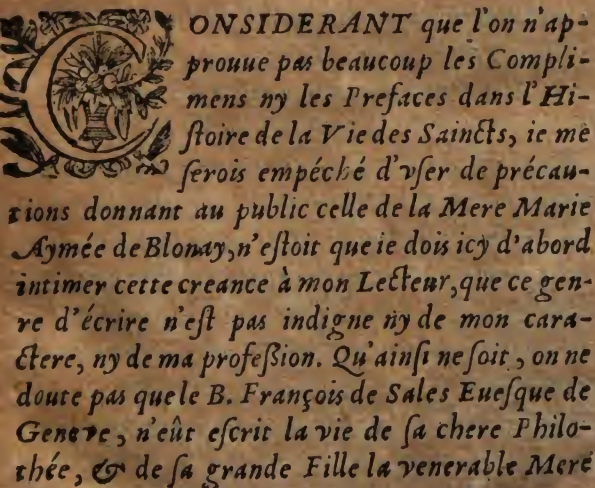 CONSIDERANT que l'on n'ap-
prouue pas beaucoup les Compli-
mens ny les Prefaces dans l'Hi-
ſtoire de la Vie des Saincts, ie me
ſerois empéché d'vſer de précau-
tions donnant au public celle de la Mere Marie
Aymée de Blonay, n'eſtoit que ie dois icy d'abord
intimer cette creance à mon Lecteur, que ce gen-
re d'écrire n'eſt pas indigne ny de mon cara-
ctere, ny de ma profeßion. Qu'ainſi ne ſoit, on ne
doute pas que le B. François de Sales Eueſque de
Geneve, n'eût eſcrit la vie de ſa chere Philo-
thée, & de ſa grande Fille la venerable Mere